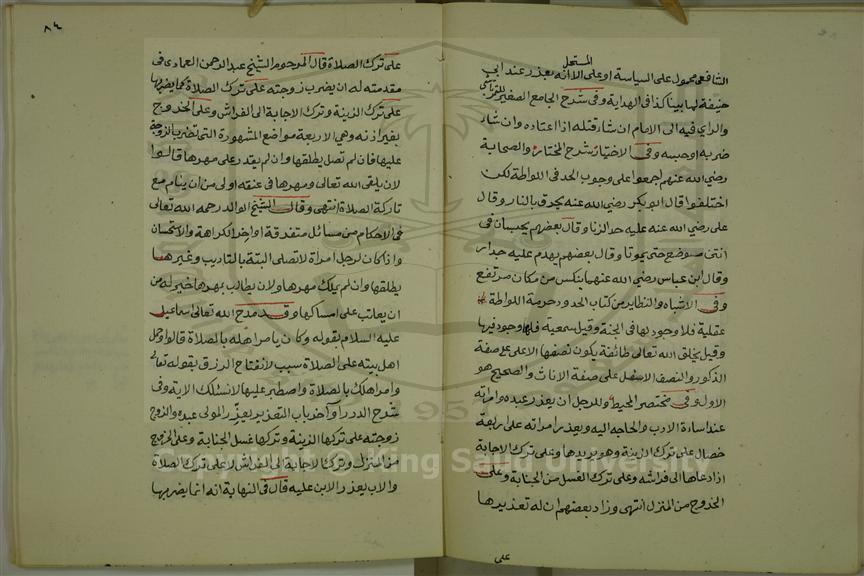 المستحل
الشافعي محمول على السياسة او على الا انه يعذر عند ابي
حنيفة لما بينا كذا في الهداية وفي شرح الجامع الصغير
والراي فيه الى الامام ان شاء قتله اذا اعتاده وان شاء
ضربه او حبسه وفي الاختيار شرح المختار والصحابة
رضي الله عنهم اجمعوا على وجوب الحد في اللواطة لكن
اختلفوا قال ابو بكر رضي الله عنه يحرق بالنار وقال
على رضي الله عنه عليه حد الزنا وقال بعضهم يحبسان في
انتن موضع حتى يموتا وقال بعضهم يهدم عليه جدار
وقال ابن عباس رضي الله عنهما ينكس من مكان مرتفع
وفي الاشباه والنظاير من كتاب الحدود حرمة اللواطة
عقلية فلا وجود لها في الجنة وقيل سمعية فلها وجود فيها
وقيل يخلق الله تعالى طائفة يكون نصفها الاعلى على صفة
الذكور والنصف الاسفل على صفة الاناث والصحيح هو
الاول وفي مختصر المحيط وللرجل ان يعذر عبده وامراته
عند اساءة الادب والحاجه اليه ويعذر امراته على اربعة
خصال على ترك الزينة وهو يريدها وعلى ترك الاجابة
اذا دعاها الى فراشه وعلى ترك الغسل من الجنابة وعلى
الخروج من المنزل انتهى وزاد بعضهم ان له تعذيرها
على
٨٤
على ترك الصلاة قال المرحوم الشيخ عبد الرحمن العمادى في
مقدمته له ان يضرب زوجته على ترك الصلاة كما يضربها
على ترك الزينة وترك الاجابة الى الفراش وعلى الخروج
بغير اذنه وهي الاربعة مواضع المشهورة التي تضرب الزوجة
عليها فان لم تصل يطلقها وان لم يقدر على مهرها قالوا
لان يلقى الله تعالى ومهرها في عنقه اولى من ان ينام مع
تاركة الصلاة انتهى وقال الشيخ الوالد رحمه الله تعالى
في الاحكام من مسائل متفرقة اواخر الكراهة والاستحسان
واذا كان لرجل امراة لا تصلى البتة بالتاديب وغيرها
يطلقها وان لم يملك مهرها ولان يطالب بمهرها خير له من
ان يعاتب على امساكها وقد مدح الله تعالى اسماعيل
عليه السلام بقوله وكان يامر اهله بالصلاة قالوا وحمل
اهل بيته على الصلاة سبب لانفتاح الرزق بقوله تعالى
وامر اهلك بالصلاة واصطبر عليها لا نسئلك الاية وفي
شرح الدرر واخر باب التعذير يعزر المولى عبده والزوج
زوجته على تركها الزينة وتركها غسل الجنابة وعلى الخروج
من المنزل وترك الاجابة الى الفراش لا على ترك الصلاة
والاب يعذر الابن عليه قال في النهاية انه انما يضربها
Copyright © King Saud University
1957